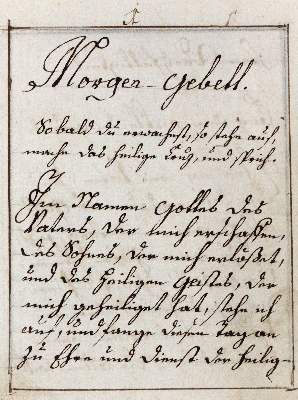 Morgen-Gebett.
Sobald du erwachest, so stehe auf,
mache das heilige Creuz, und sprich.
Im Namen Gottes des
Vaters, der mich erschaffen,
des Sohnes, der mich erlößet,
und des heiligen Geistes, der
mich geheiliget hat, stehe ich
auf, und fange diesen Tag an
zu Ehre und Dienst der heilig-